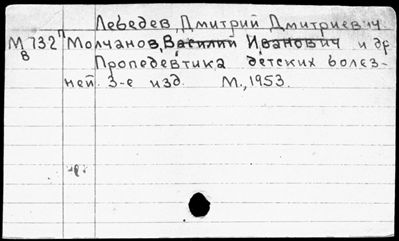 Лебедев, Дмитрий Дмитриевич
М 732 п Молчанов, Василий Иванович и др
в Пропедевтика детских болез-
ней. 3-е изд. М., 1953.